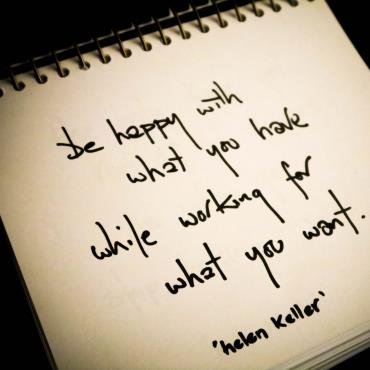 be happy with
what you have
while working for
what you want.
'helen keller'